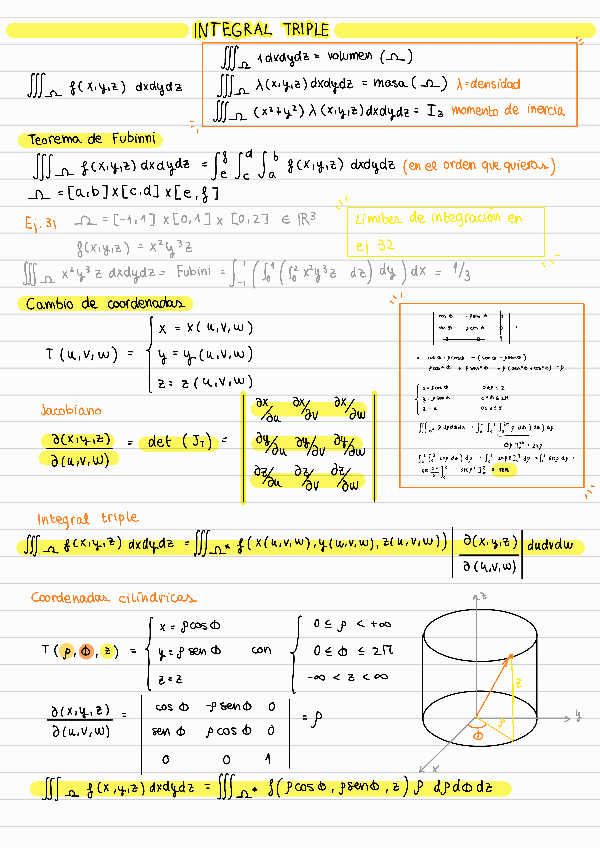 INTEGRAL TRIPLE
∭_Ω 1 dxdydz = volumen (Ω)
∭_Ω f(x,y,z) dxdydz
∭_Ω λ(x,y,z) dxdydz = masa (Ω) λ=densidad
∭_Ω (x²+y²) λ(x,y,z) dxdydz = Iz momento de inercia
Teorema de Fubinni
∭_Ω f(x,y,z) dxdydz = ∫_e^f ∫_c^d ∫_a^b f(x,y,z) dxdydz (en el orden que quieras)
Ω = [a,b]x[c,d]x[e,f]
Ej. 31 Ω = [-1,1] x [0,1] x [0,2] ∈ ℝ³
Límites de integración en
ej 32
f(x,y,z) = x²y³z
∭_Ω x²y³z dxdydz = Fubini = ∫_-1^1 (∫_0^1 (∫_0^2 x²y³z dz) dy) dx = 1/3
Cambio de coordenadas
x = x(u,v,w)
T(u,v,w) = { y = y(u,v,w)
z = z(u,v,w)
Jacobiano
∂(x,y,z)/∂(u,v,w) = det (J_T) =
∂x/∂u ∂x/∂v ∂x/∂w
∂y/∂u ∂y/∂v ∂y/∂w
∂z/∂u ∂z/∂v ∂z/∂w
Integral triple
∭_Ω f(x,y,z) dxdydz = ∭_Ω* f(x(u,v,w),y(u,v,w),z(u,v,w)) |∂(x,y,z)/∂(u,v,w)| dudvdw
Coordenadas cilíndricas
x = ρcosΦ 0 ≤ ρ < +∞
T(ρ,Φ,z) = { y = ρ senΦ con { 0 ≤ Φ ≤ 2π
z = z -∞ < z < ∞
∂(x,y,z)/∂(u,v,w) =
cosΦ -ρsenΦ 0
senΦ ρcosΦ 0
0 0 1
= ρ
z
y
x
Z
Φ
∭_Ω f(x,y,z) dxdydz = ∭_Ω* f(ρcosΦ, ρsenΦ, z) ρ dρdΦdz